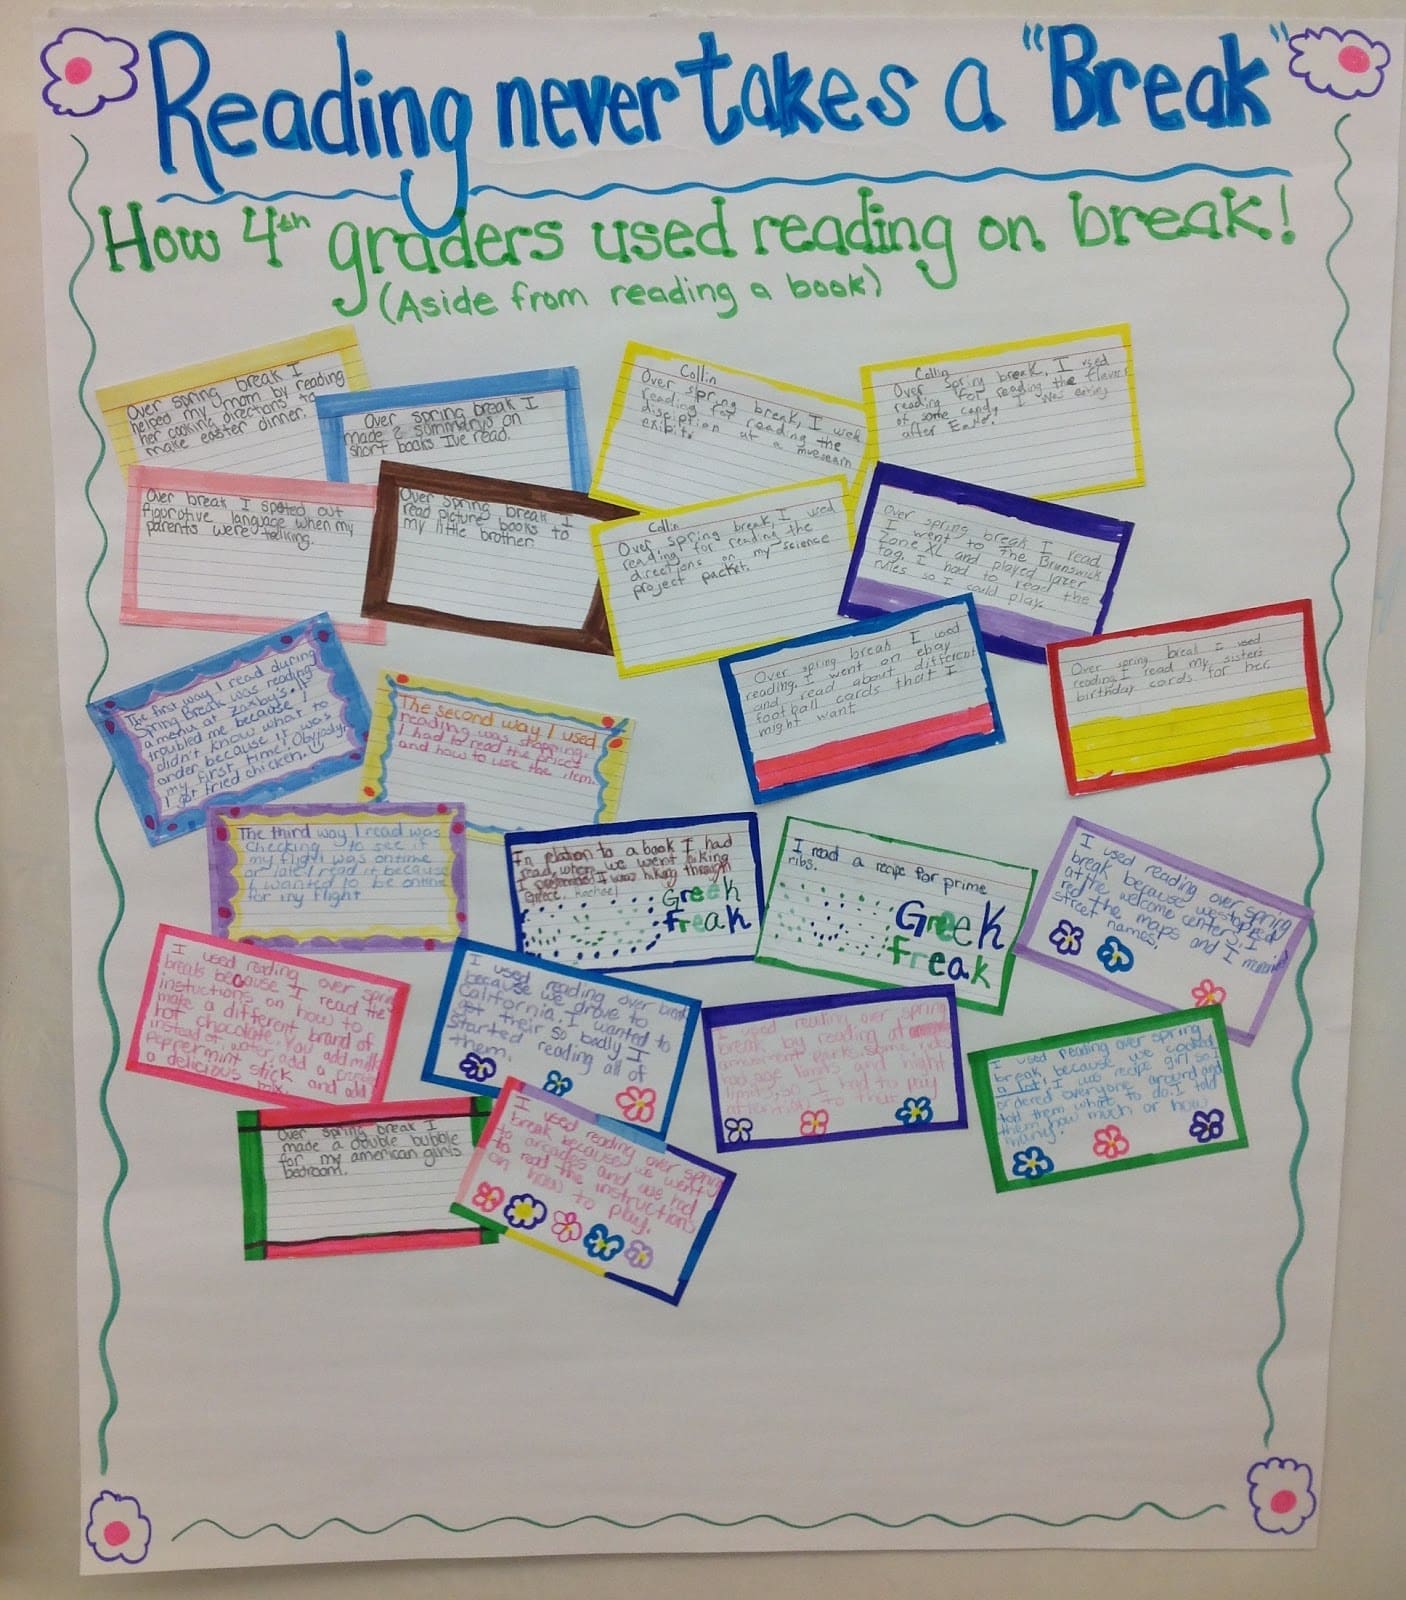 Reading never takes a "Break"
How 4th graders used reading on break!
(Aside from reading a book)
Over spring break I
helped my mom by reading
her cooking directions to
make easter dinner.
Over spring break I
made 2 summarys on
short books I've read.
Collin
Over spring break, I
reading for reading the
disciption at a
exibit.
Collin
Over Spring break, I used
reading for reading the flavor
of some candy I was eating
after
Over break I spotted out
figurative language when my
parents were talking.
Over spring break I
read picture books to
my little brother.
Collin
Over spring break, I used
reading for reading the
directions on my science
project packet.
Over spring break I read
I went to The Brunswick
Zone XL and played lazer
tag. I had to read the
rules so I could play.
Over spring break I used
reading. I went on ebay
and read about different
football cards that I
might want.
Over spring break I used
reading. I read my sisters
birthday cards for her.
The first way I read during
Spring Break was reading
a menu at Zaxby's. It
troubled me because I
didn't know what to
order because it was
my first time! Obviosly,
I got fried chicken.
The second way I used
reading was shopping.
I had to read the prices
and how to use the item.
The third way I read was
checking to see if
my flight was ontime
or late. I read it because
I wanted to be ontime
for my flight
In relation to a book I had
read, when we went hiking
I pretended I was hiking through
Greece. Rachael
Greek
freak
I read a recipe for prime
ribs.
Greek
freak
I used reading over spring
break because we stopped
at the welcome center. I
red the maps and I
street names!
I used reading over spring
break because I read the
instuctions on how to
make a different brand of
hot chocolate. You add milk
instead of water, add a
peppermint stick and add
a delicious
I used reading over break
because we drove to
California. I wanted to
get their so badly I
started reading all of
them.
I used reading over spring
break by reading at
amusment parks. some rides
had age limits and hight
limits, so I had to pay
attention to that.
I used reading over spring
break, because we cooked
a lot! I was recipe girl so I
ordered everyone around and
told them what to do. I told
them how much or how
many!
Over spring break I
made a double bubble
for my american girls
bedroom.
I used reading over spring
break because we went
to arcades and we had
to read the instructions
on how to play.